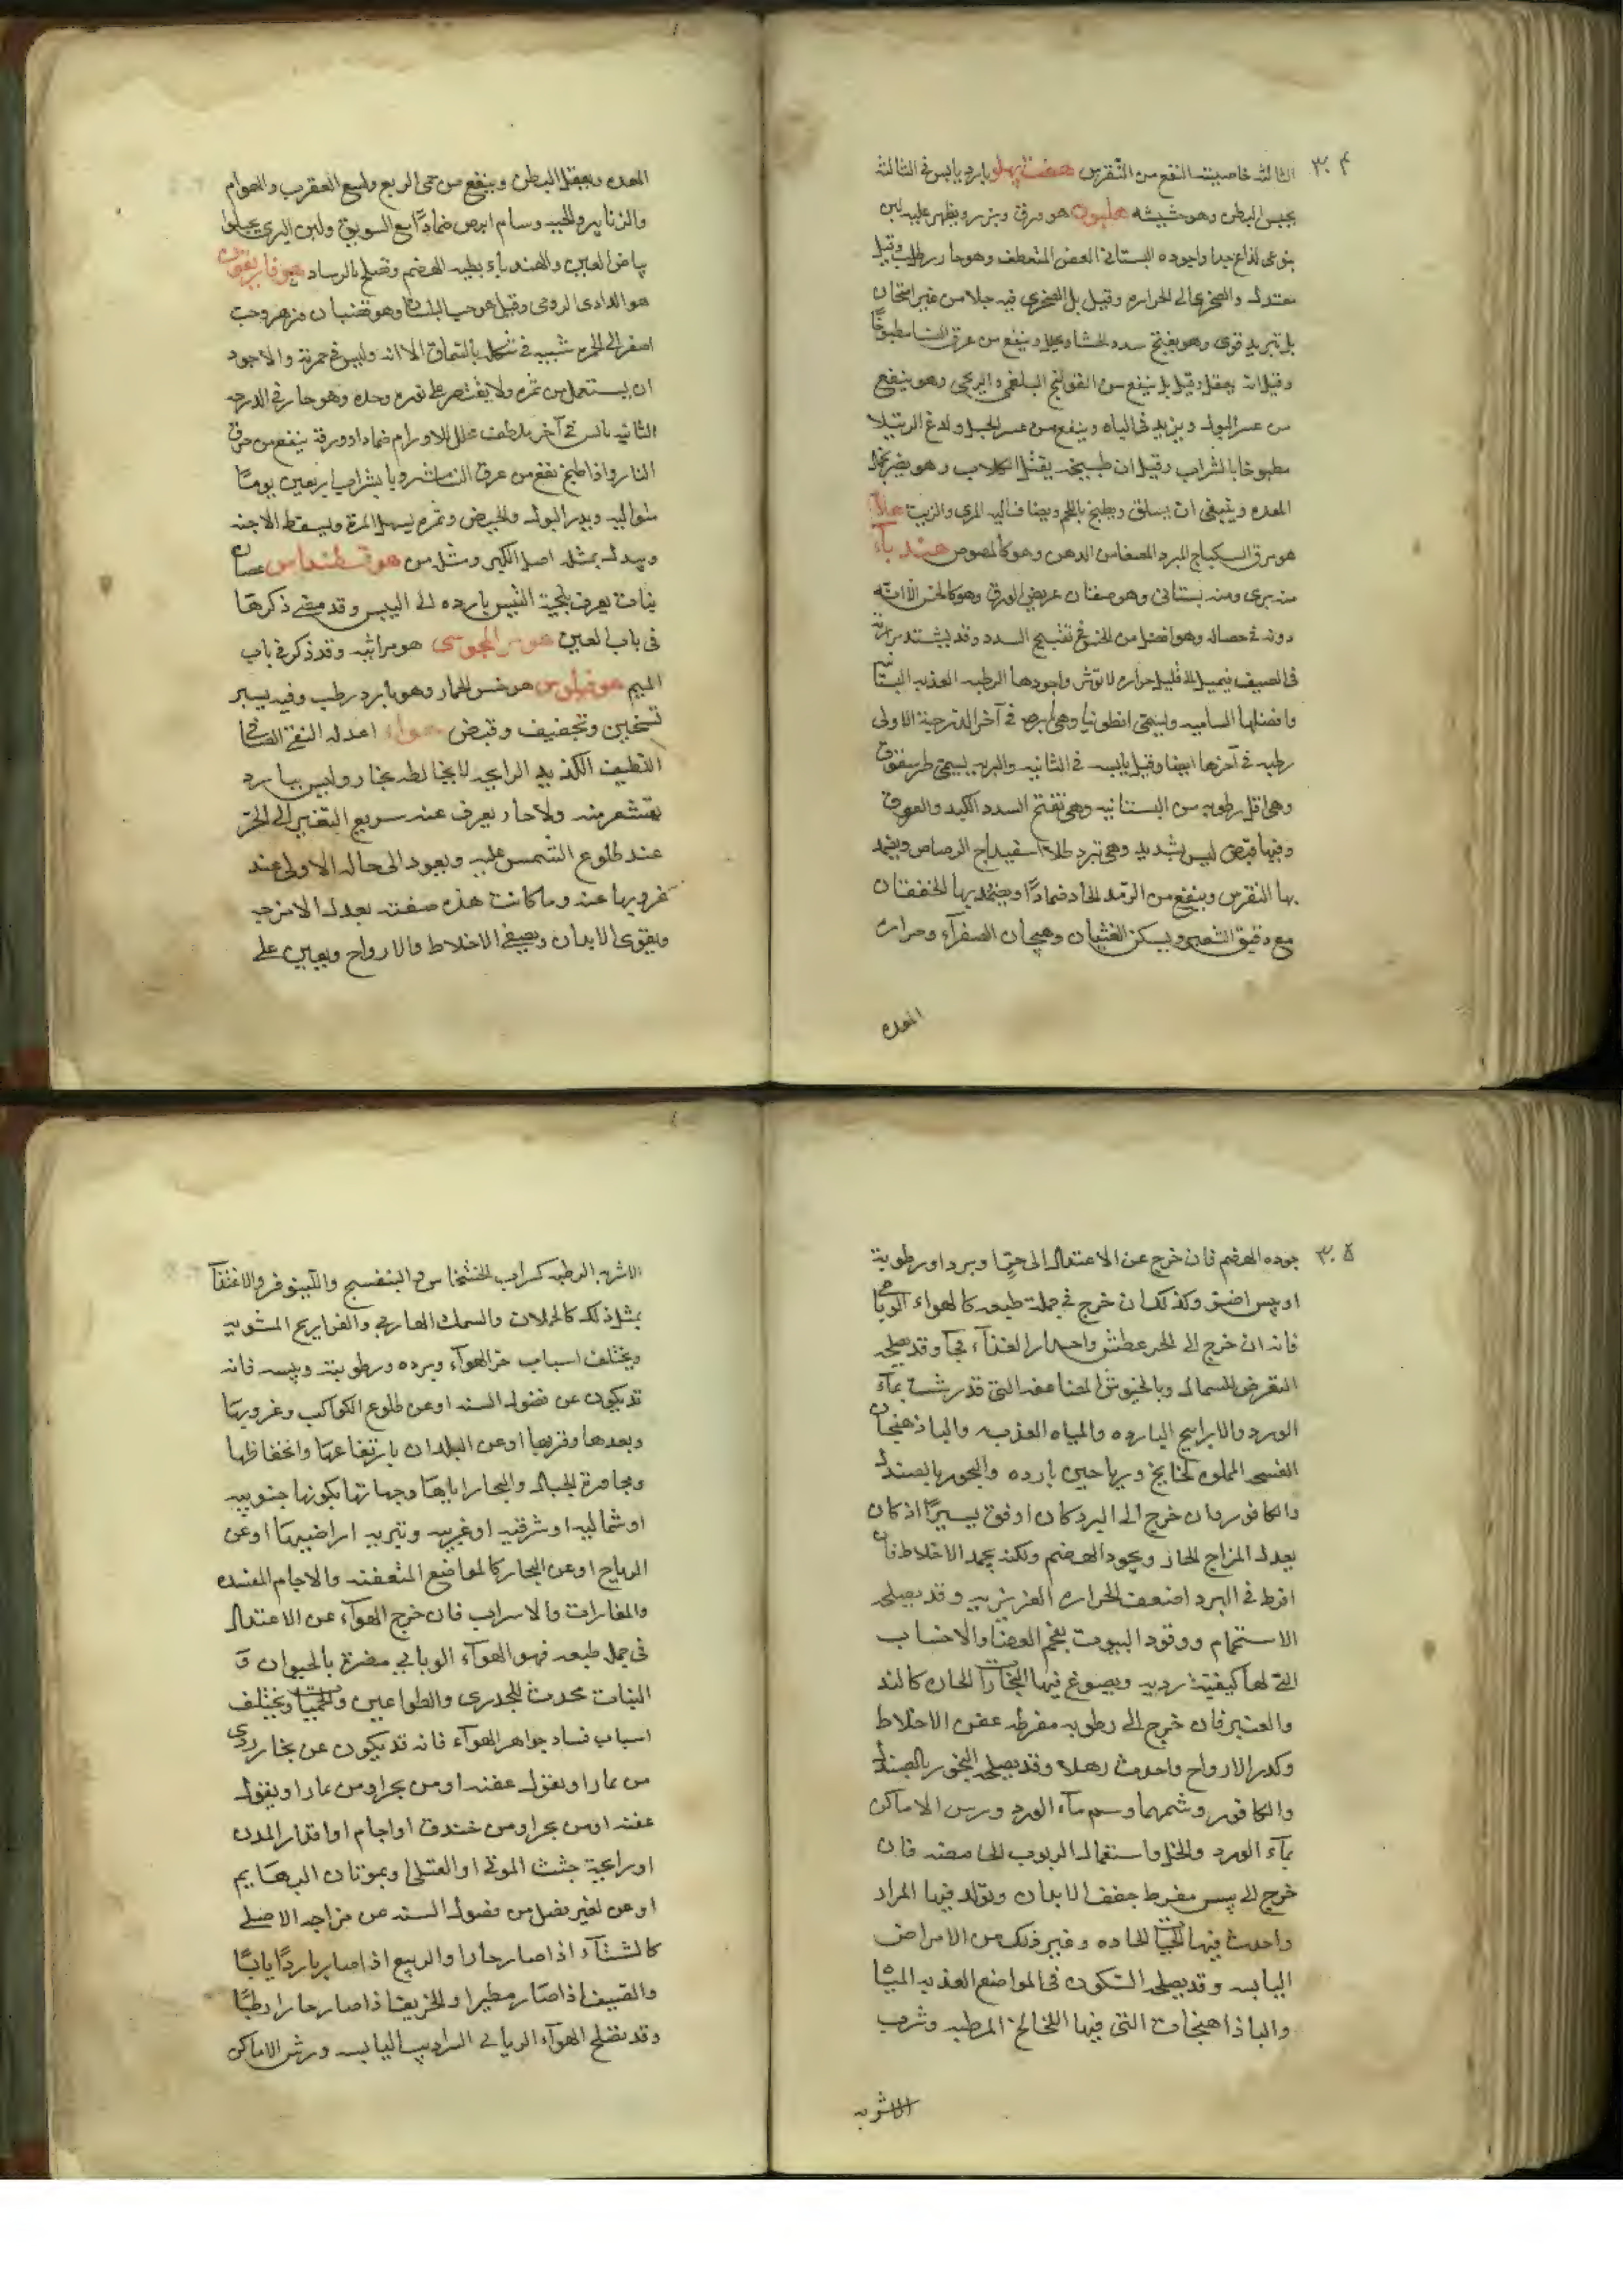 ٣٠٤
الثالثه خاصيته النفع من النقرس هفت پهلو بارد يابس فى الثالثة
يحبس البطن وهو حشيشه هليون هو ورق وبزر ويظهر عليه لبن
يتوعى لذاع جدا واجوده البستانى الغض المنعطف وهو حار رطب وقيل
معتدل والصخرى الى الحراره وقيل بل الصخرى فيه جلا من غير اسخان
بل تبريد قوى وهو يفتح سدد الحشا وينفع من عرق النسا مطبوخًا
وقيل انه يعقل وقيل بل ينفع من القولنج البلغمى والريحى وهو ينفع
من عسر البول ويزيد فى الباه وينفع من عسر الحبل ولدغ الرتيلا
مطبوخا بالشراب وقيل ان طبيخه يقتل الكلاب وهو يضر بفم
المعده وينبغى ان يسلق ويطبخ باللحم ويضاف اليه المرى والزيت هلام
هو مرق السكباج المبرد المصفا من الدهن وهو كالمصوص هندباء
منه برى ومنه بستانى وهو صنفان عريض الورق وهو كالخس الا انه
دونه فى خصاله وهو افضل من الخس فى تفتيح السدد وقد يشتد مرارته
فى الصيف فيميل الى قليل حراره لا توثر واجودها الرطبه العذبه البستانيه
وافضلها الشاميه ويسمى انطونيا وهى بارده فى آخر الدرجة الاولى
رطبه فى آخرها ايضا وقيل يابسه فى الثانيه والبريه يسمى طرخشقوق
وهى اقل رطوبه من البستانيه وهى تفتح السدد الكبد والعروق
وفيها قبض ليس بشديد وهى تبرد طلاءً اسفيداج الرصاص ويضمد
بها النقرس وينفع من الرمد الحاد ضمادًا ويضمد بها الخفقان
مع دقيق الشعير ويسكن الغثيان وهيجان الصفرآء وحراره
المعده
المعده ويعقل البطن وينفع من حمى الربع ولسع العقرب والهوام
والزنابير والحيه وسام ابرص ضمادًا مع السويق ولبن البرى يجلوا
بياض العين والهندباء بطيه الهضم وتصلح بالرساد هيوفاريقون
هو الدادى الرومى وقيل هو حب البلسان وهو قضبان وزهر وحب
اصفر الى الحمره شبيه فى شكله بالسماق الا انه وليس فى حمرته والاجود
ان يستعمل من ثمره ولا يقتصر على نوره وحده وهو حار فى الدرجه
الثانيه يابس فى آخر ملطف محلل للاورام ضمادا وورقه ينفع من حرق
النار واذا طبخ نفع من عرق النسا شربا بشراب اربعين يومًا
متواليه ويدر البول والحيض وثمره يسهل المرة ويسقط الاجنه
وبدله بمثله اصل الكبر ومثله من هوقسطنداس عصاره
نبات يعرف بلحية التيس بارده الى اليبس وقد مضى ذكرها
فى باب العين هوم المجوسى هو مرانيه وقد ذكر فى باب
الميم هوفيلوس هو خس الحمار وهو بارد رطب وفيه يسير
تسخين وتجفيف وقبض هواء اعدله النقى الصافى
اللطيف اللذيذ الرايحه لا يخالطه بخار وليس ببارد
يقشعر منه ولا حار يعرف عنه سريع التغير الى الحر
عند طلوع الشمس عليه ويعود الى حاله الاولى عند
غروبها عنه وما كانت هذه صفته يعدل الامزجه
ويقوى الابدان ويصفى الاخلاط والارواح ويعين على
٣٠٥
جوده الهضم فان خرج عن الاعتدال الى حرّ او برد او رطوبة
او يبس اضرّ وكذلك ان خرج فى جملة طبعه كالهواء الوبائى
فانه ان خرج الى الحر عطش واحدار الغذآء فجآ وقد يصلحه
التعرض للشمال وبالخيوش المضاعفه التى قد رشت بمآء
الورد والابراسيم البارده والمياه العذبه والباذهنجان
الفسح المملوه برياحين بارده والبخور بالصندل
والكافور وان خرج الى البرد كان اوفق يسيرًا اذ كان
يعدل المزاج الحار ويجود الهضم ولكنه يجمد الاخلاط فان
افرط فى البرد اضعف الحراره الغريزيه وقد يصلحه
الاستحمام ووقود البيوت بفحم الغضا والاخشاب
التى لها كيفية رديه ويصوغ فيها البخارات الحاره كالند
والعنبر فان خرج الى رطوبه مفرطه عفن الاخلاط
وكدر الارواح واحدث رهلا وقد يصلحه البخور بالصندل
والكافور وشمهما وشم مآء الورد ورس الاماكن
بمآء الورد والخل واستعمال الربوب الحامضه فان
خرج الى يبس مفرط جفف الابدان وتولد فيها المرار
واحدث فيها الحميات الحاده وغير ذلك من الامراض
اليابسه وقد يصلحه السكون فى المواضع العذبه المياه
والباذاهنجات التى فيها اللخالخ المرطبه وشرب
الاشربه
الاشربه الرطبه كشراب الخشخاش والبنفسج واللينوفر والاغتذآ
بمثل ذلك كالحملان والسمك الهازبى والفراريج المشويه
ويختلف اسباب حر الهوآء وبرده ورطوبته ويبسه فانه
قد يكون عن فضول السنه او عن طلوع الكواكب وغروبها
وبعدها وقربها او عن البلدان بارتفاعها وانخفاضها
ومجاورة الجبال والبحار اياها وجهاتها بكونها جنوبيه
او شماليه او شرقيه او غربيه وتربه اراضيها او عن
الرياح او عن البحار كالمواضع المتعفنه والاجام المفسده
والمغارات والاسراب فان خرج الهوآء عن الاعتدال
فى جمله طبعه فهو الهوآء الوبايى مضرة بالحيوان و
النبات محدث للجدرى والطواعين والحميات ويختلف
اسباب فساد جواهر الهوآء فانه قد يكون عن بخار ردى
من غار او بقول عفنه او من بحر او من غار او بقول
عفنه او من بحر او من خندق او اجام او اقذار المدن
او رايحة جثث الموتى او القتلى او بموتان البهايم
او عن تغير فصل من فصول السنه عن مزاجه الاصلى
كالشتآء اذا صار حارا والربيع اذا صار باردًا يابسًا
والصيف اذا صار مطيرا والخريف اذا صار حارا رطبًا
وقد يصلح الهوآء الوبايى السراديب اليابسه ورش الاماكن